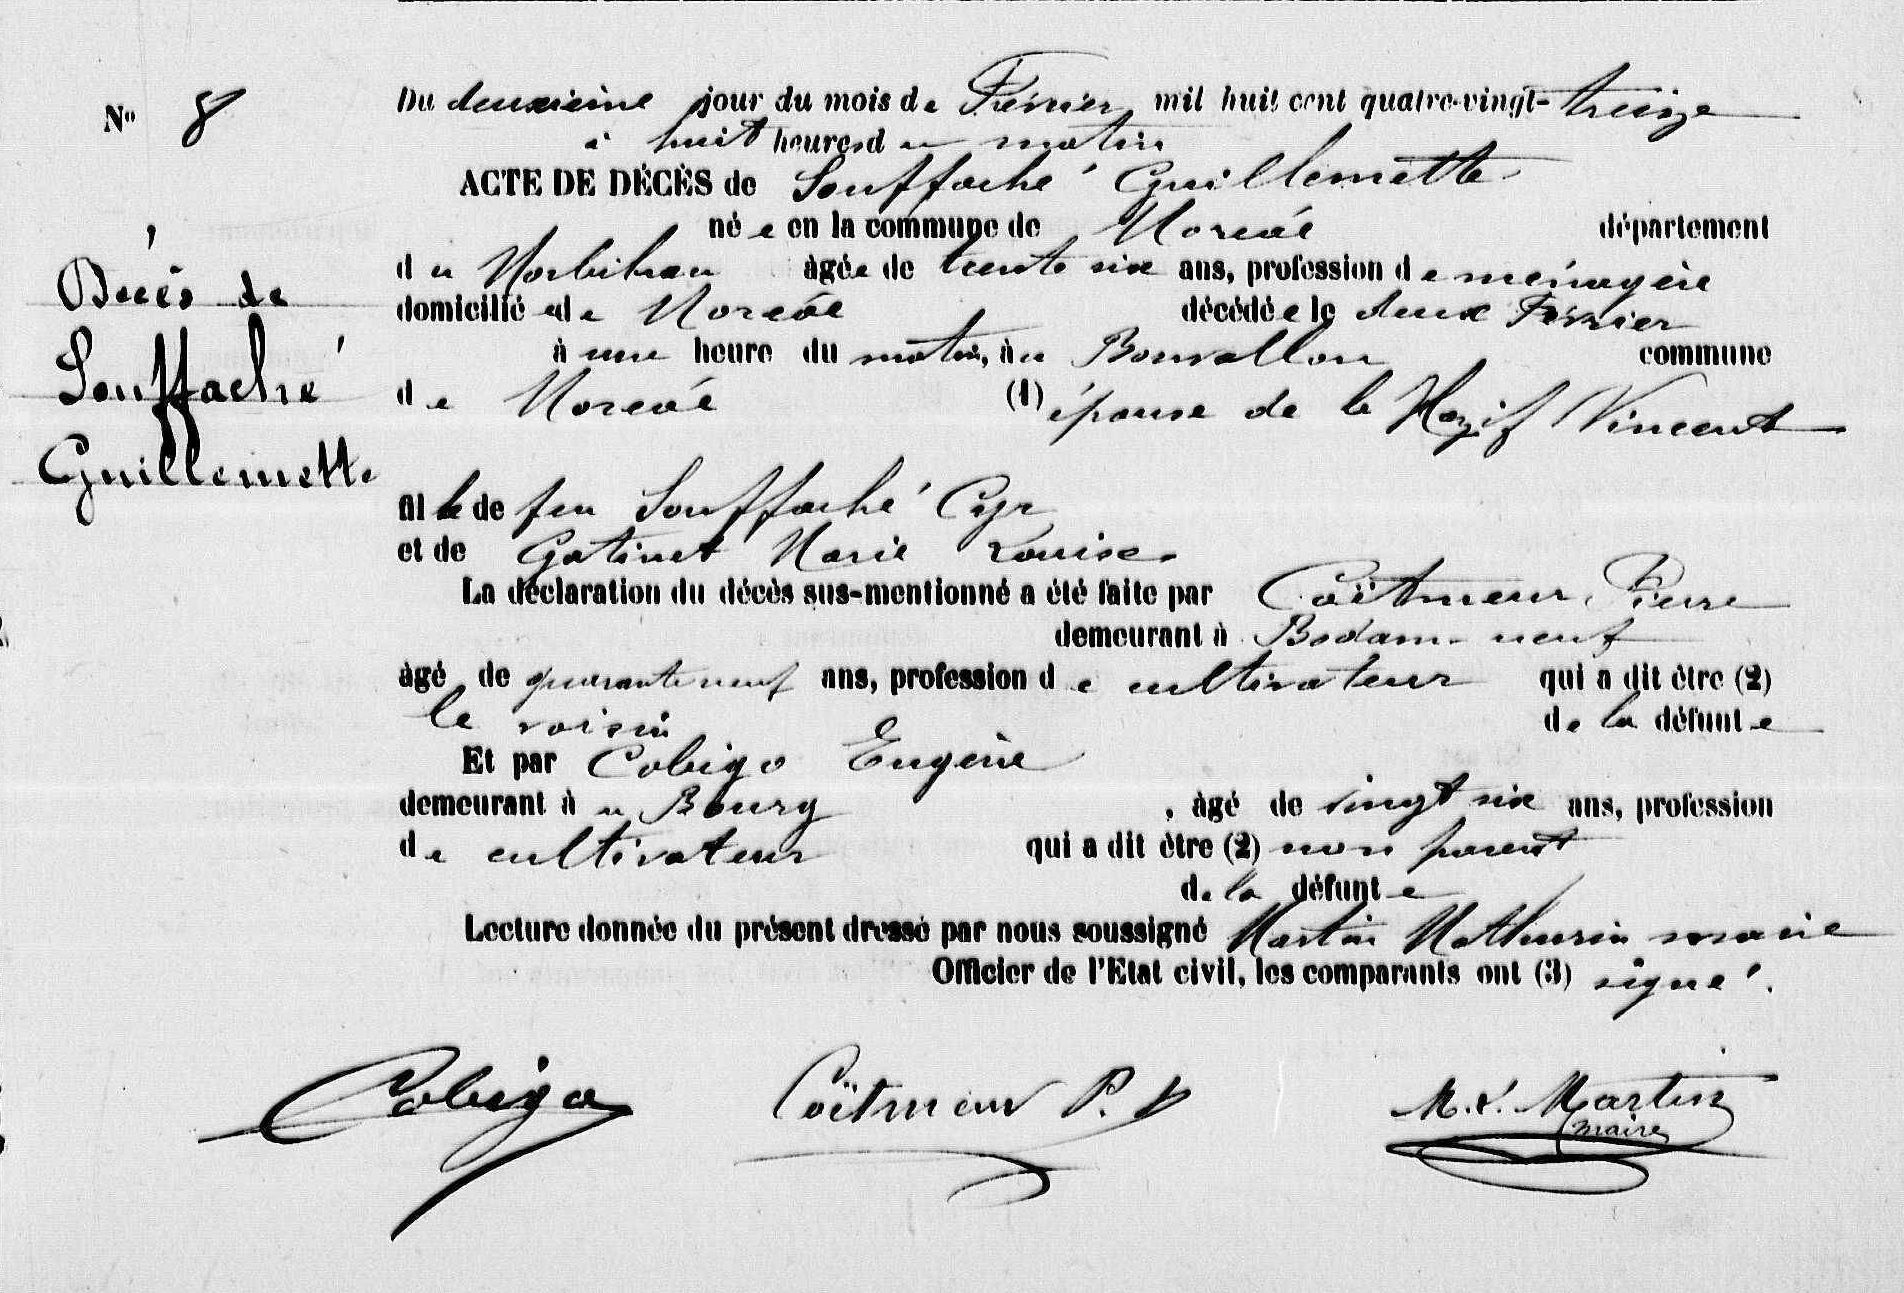 No 8
Décès de
Souffaché
Guillemette
Du deuxième jour du mois de Février mil huit cent quatre-vingt-treize
à huit heures du matin
ACTE DE DÉCÈS de Souffaché Guillemette
née en la commune de Noréac département
du Morbihan âgée de trente six ans, profession de ménagère
domiciliée de Moréac décédée le deux Février
à une heure du matin, à Bonvallon commune
de Moréac (1) épouse de le Mézif Vincent
fille de feu Souffaché Cyr
et de Gatinet Marie Louise
La déclaration du décès sus-mentionné a été faite par Coëtmeur Pierre
demeurant à Bodam neuf
âgé de quarante neuf ans, profession de cultivateur qui a dit être (2)
le voisin de la défunte
Et par Cobigo Eugène
demeurant à u Bourg, âgé de vingt six ans, profession
de cultivateur qui a dit être (2) non parent
de la défunte
Lecture donnée du présent dressé par nous soussigné Martin Mathurin maire
Officier de l'Etat civil, les comparants ont (3) signé.
Cobigo Coëtmeur P. M. Martin
maire